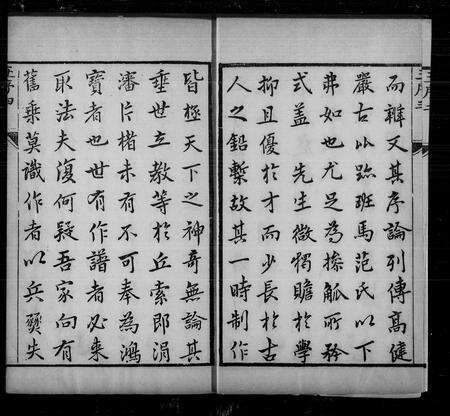 而辯又其序論列傳高健
嚴古以跡班馬范氏以下
弗如也尤足為操觚所矜
式蓋先生微獨贍於學
抑且優於才而少長於古
人之鉛槧故其一時制作
皆極天下之神奇無論其
垂世立教等於丘索即涓
瀋片楮未有不可奉為鴻
寶者也世有作譜者必来
取法夫復何疑吾家向有
舊乘莫識作者以兵燹失